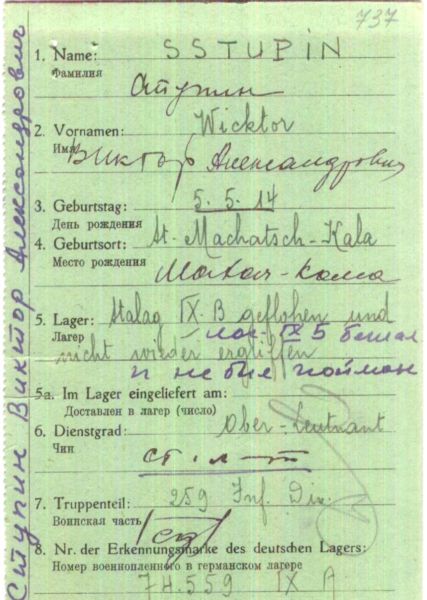 737
1. Name: SSTUPIN
Фамилия
Ступин
2. Vornamen: Wicktor
Имя Виктор Александрович
3. Geburtstag: 5. 5. 14
День рождения
4. Geburtsort: St. Machatsch-Kala
Место рождения
Махач-Кала
5. Lager: Stalag IX. B geflohen und
Лагер
лаг. IX Б бежал
nicht wieder ergriffen
и не был пойман
5a. Im Lager eingeliefert am:
Доставлен в лагер (число)
6. Dienstgrad: Ober-Leutnant
Чин
ст. л-т
7. Truppenteil: 259 Inf. Div.
Воинская часть
сд
8. Nr. der Erkennungsmarke des deutschen Lagers:
Номер военнопленного в германском лагере
74.559 IX A
Ступин Виктор Александрович